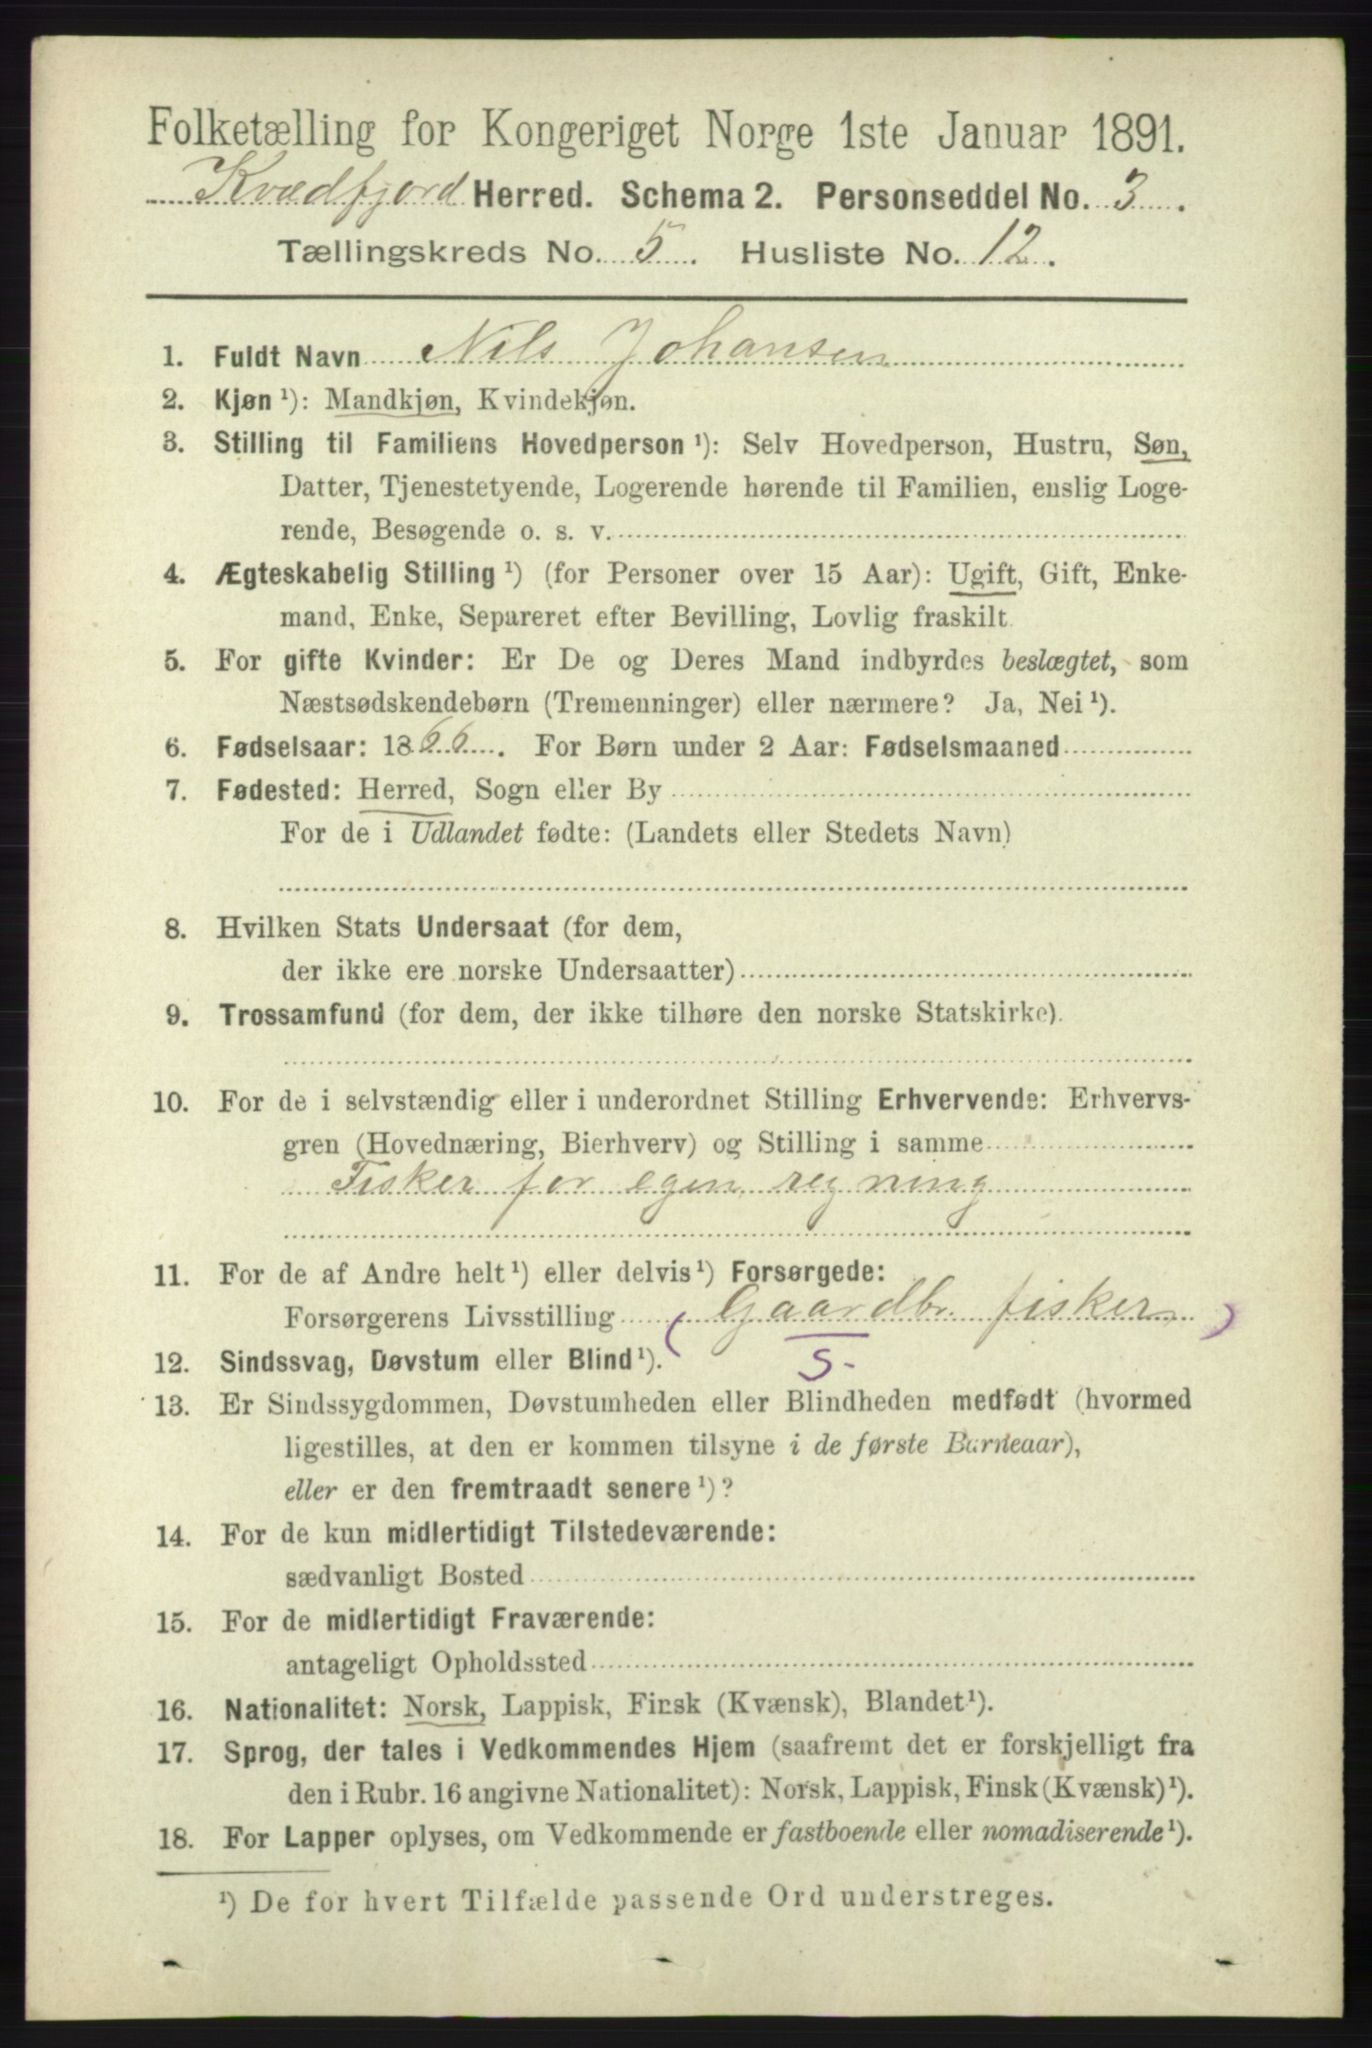 Folketælling for Kongeriget Norge 1ste Januar 1891.
Kvædfjord Herred. Schema 2. Personseddel No. 3.
Tællingskreds No. 5. Husliste No. 12.
1. Fuldt Navn Nils Johansen
2. Kjøn ¹): Mandkjøn, Kvindekjøn.
3. Stilling til Familiens Hovedperson ¹): Selv Hovedperson, Hustru, Søn,
Datter, Tjenestetyende, Logerende hørende til Familien, enslig Loge-
rende, Besøgende o. s. v.
4. Ægteskabelig Stilling ¹) (for Personer over 15 Aar): Ugift, Gift, Enke-
mand, Enke, Separeret efter Bevilling, Lovlig fraskilt.
5. For gifte Kvinder: Er De og Deres Mand indbyrdes beslægtet, som
Næstsødskendebørn (Tremenninger) eller nærmere? Ja, Nei ¹).
6. Fødselsaar: 1866. For Børn under 2 Aar: Fødselsmaaned
7. Fødested: Herred, Sogn eller By
For de i Udlandet fødte: (Landets eller Stedets Navn)
8. Hvilken Stats Undersaat (for dem,
der ikke ere norske Undersaatter)
9. Trossamfund (for dem, der ikke tilhøre den norske Statskirke).
10. For de i selvstændig eller i underordnet Stilling Erhvervende: Erhvervs-
gren (Hovednæring, Bierhverv) og Stilling i samme
Fisker for egen regning
11. For de af Andre helt ¹) eller delvis ¹) Forsørgede:
Forsørgerens Livsstilling (Gaardbr. fisker)
12. Sindssvag, Døvstum eller Blind ¹). S-
13. Er Sindssygdommen, Døvstumheden eller Blindheden medfødt (hvormed
ligestilles, at den er kommen tilsyne i de første Barneaar),
eller er den fremtraadt senere ¹)?
14. For de kun midlertidigt Tilstedeværende:
sædvanligt Bosted
15. For de midlertidigt Fraværende:
antageligt Opholdssted
16. Nationalitet: Norsk, Lappisk, Finsk (Kvænsk), Blandet ¹).
17. Sprog, der tales i Vedkommendes Hjem (saafremt det er forskjelligt fra
den i Rubr. 16 angivne Nationalitet): Norsk, Lappisk, Finsk (Kvænsk) ¹).
18. For Lapper oplyses, om Vedkommende er fastboende eller nomadiserende ¹).
¹) De for hvert Tilfælde passende Ord understreges.